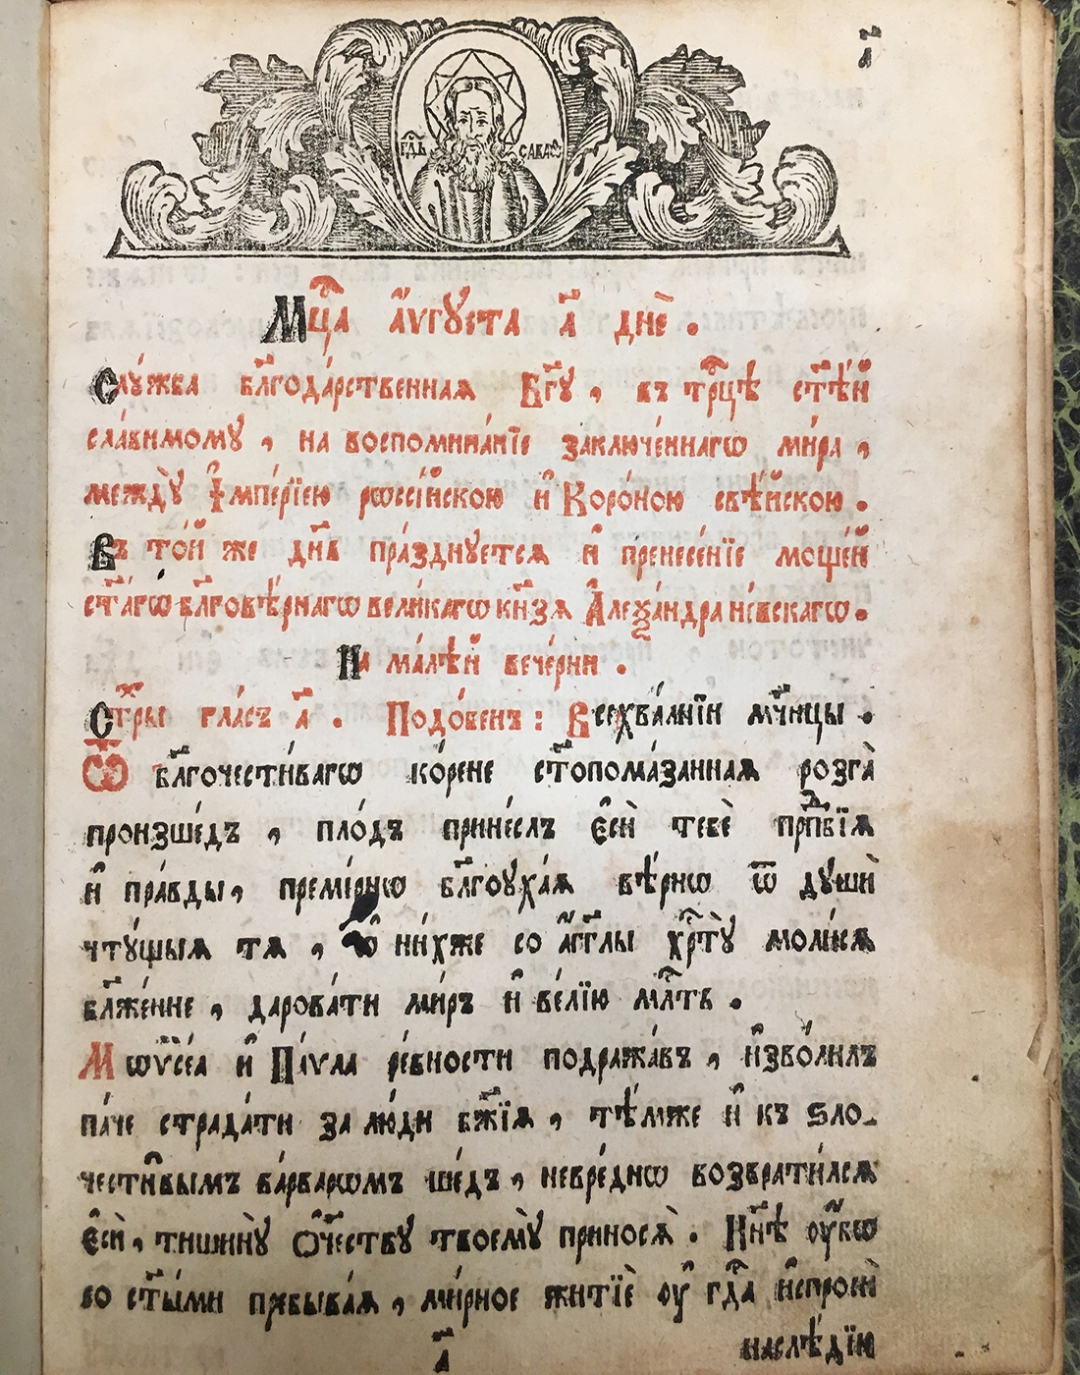 а҃
гдⷭ҇ь саваѡ́
Мцⷭ҇а а҆́ѵгꙋста л҃ днѐ .
Слꙋ́жба бл҃года́рственнаѧ Бг҃ꙋ , въ трⷪ҇цѣ ст҃ѣ́й
сла́вимомꙋ , на воспомина́нїе заключе́ннагѡ ми́ра ,
междꙋ̀ І҆мпе́рїею рѡссі́йскою и҆ Коро́ною свѣ́йскою .
Въ то́й же дн҃ь пра́зднꙋетсѧ и҆ пренесе́нїе моще́й
ст҃а́гѡ бл҃говѣ́рнагѡ вели́кагѡ кн҃зѧ А҆леѯа́ндра не́вскагѡ .
На ма́лѣй вече́рни .
Стⷯры гла́съ д҃ . Подо́бенъ : Всехва́льнїи мч҃нцы .
Ѿ бл҃гочести́вагѡ ко́рене ст҃опома́заннаѧ розга̀
произше́дъ , пло́дъ прине́слъ є҆сѝ тебѐ прпⷣбїѧ
и҆ пра́вды , преми́рнѡ бл҃гоꙋха́ѧ вѣ́рнѡ ѿ дꙋшѝ
чтꙋ́щыѧ тѧ , ѡ҆ ни́хже со а҆́гг҃лы хрⷭ҇тꙋ̀ моли́сѧ
бл҃же́нне , дарова́ти ми́ръ и҆ ве́лїю млⷭ҇ть .
Мѡѷсе́а и҆ Па́ѵла ре́вности подража́въ , и҆зво́лилъ
па́че страда́ти за лю́ди бж҃їѧ , тѣ́мже и҆ къ ѕло-
чести̑вымъ ва́рварѡмъ ше́дъ , невре́днѡ возврати́лсѧ
є҆сѝ , тишинꙋ̀ ѻ҆те́чествꙋ твоемꙋ̀ приносѧ̀ . Нн҃ѣ ᲂу҆́бѡ
со ст҃ы́ми пребыва́ѧ , ми́рное житїѐ ᲂу҆ гдⷭ҇а и҆спросѝ
а҃ наслѣ́дїю